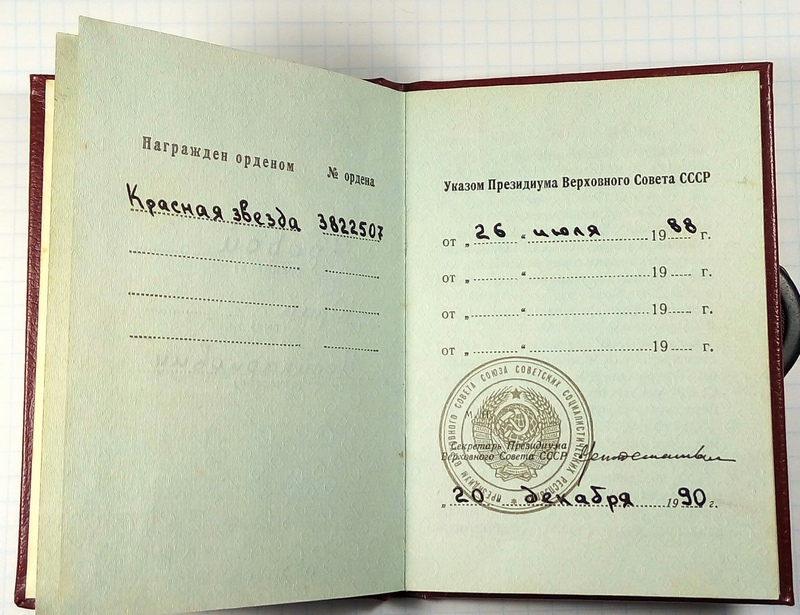 Награжден орденом № ордена
Красная звезда 3822507
Указом Президиума Верховного Совета СССР
от „ 26 “ июля 1988 г.
от „ “ 19 г.
от „ “ 19 г.
от „ “ 19 г.
ПРЕЗИДИУМ ВЕРХОВНОГО СОВЕТА СОЮЗА СОВЕТСКИХ СОЦИАЛИСТИЧЕСКИХ РЕСПУБЛИК
Секретарь Президиума
Верховного Совета СССР
„ 20 “ декабря 1990 г.